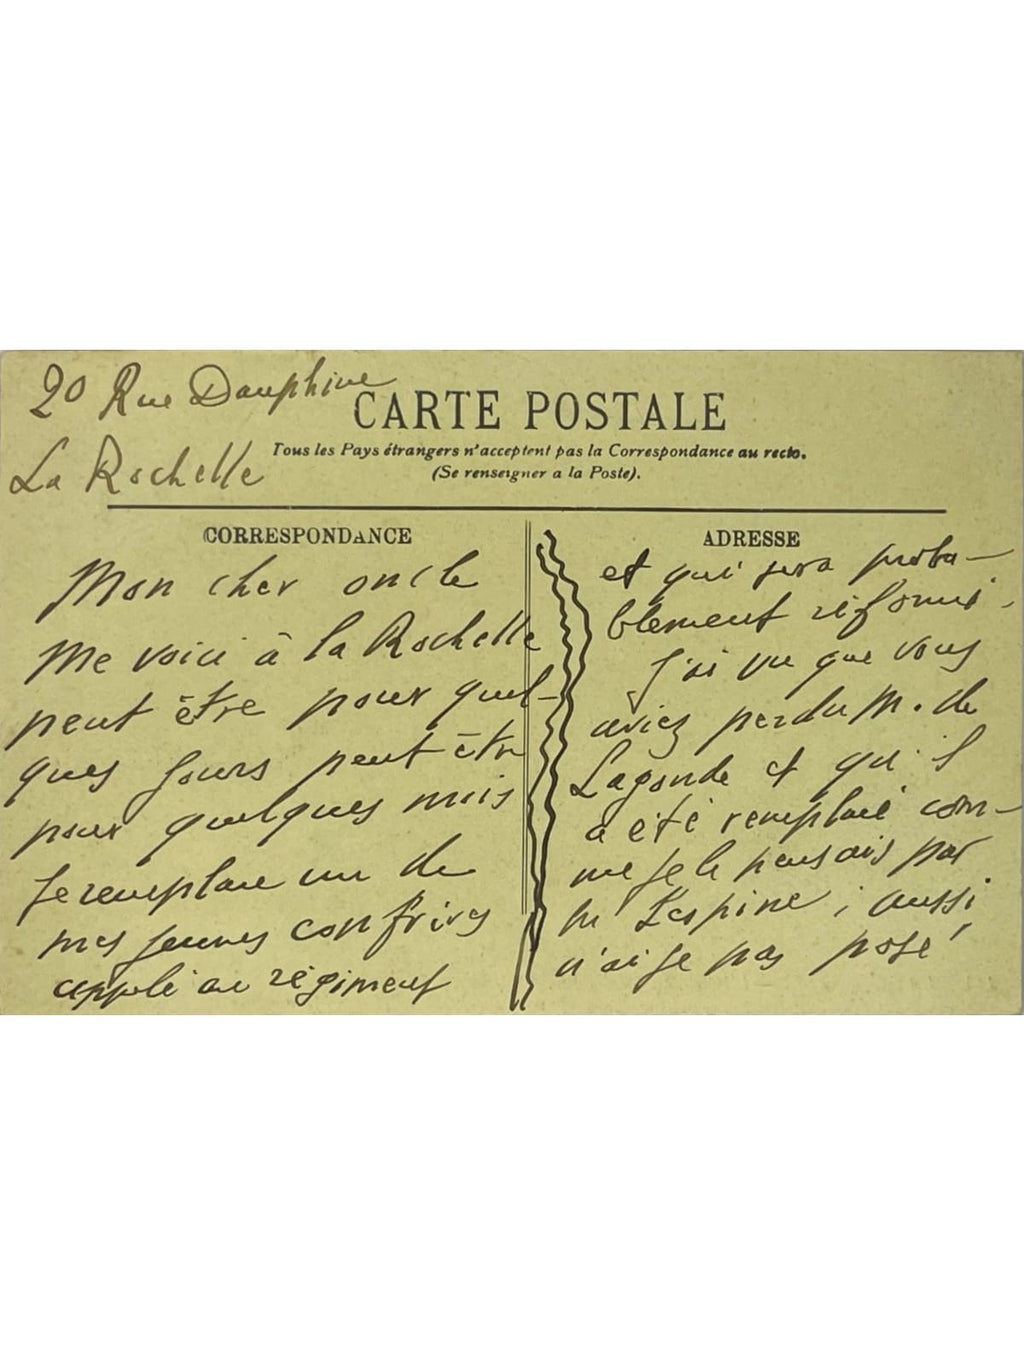 20 Rue Dauphine
La Rochelle
CARTE POSTALE
Tous les Pays étrangers n'acceptent pas la Correspondance au recto.
(Se renseigner a la Poste).
CORRESPONDANCE
Mon cher oncle
Me voici à la Rochelle
peut être pour quel-
ques jours peut être
pour quelques mois
Je remplace un de
mes jeunes confrères
appelé au régiment
ADRESSE
et qui sera proba-
blement réformé.
J'ai vu que vous
aviez perdu M. de
Lagonde et qu'il
a été remplacé com-
me je le pensais par
Mr Lespine ; aussi
n'ai je pas posé